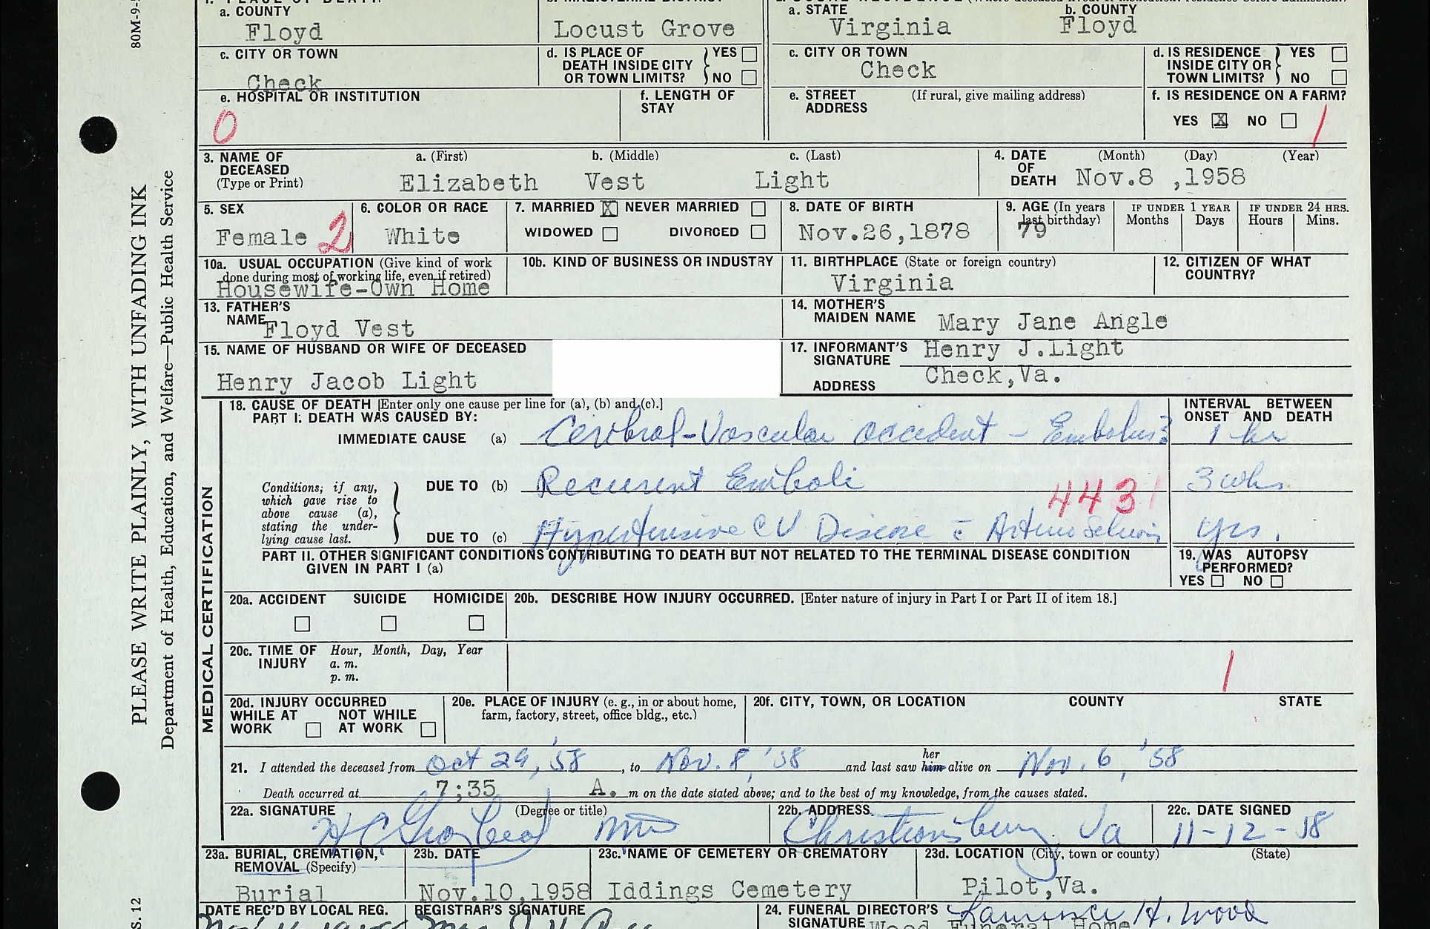 a. COUNTY
Floyd
Locust Grove
a. STATE
Virginia
b. COUNTY
Floyd
80M-9-5
c. CITY OR TOWN
Check
d. IS PLACE OF DEATH INSIDE CITY OR TOWN LIMITS? YES NO
c. CITY OR TOWN
Check
d. IS RESIDENCE INSIDE CITY OR TOWN LIMITS? YES NO
e. HOSPITAL OR INSTITUTION
0
f. LENGTH OF STAY
e. STREET ADDRESS (If rural, give mailing address)
f. IS RESIDENCE ON A FARM?
YES X NO
1
3. NAME OF DECEASED (Type or Print)
a. (First) b. (Middle) c. (Last)
Elizabeth Vest Light
4. DATE OF DEATH (Month) (Day) (Year)
Nov.8 ,1958
5. SEX
Female 2
6. COLOR OR RACE
White
7. MARRIED X NEVER MARRIED
WIDOWED DIVORCED
8. DATE OF BIRTH
Nov.26,1878
9. AGE (In years last birthday)
79
IF UNDER 1 YEAR Months Days
IF UNDER 24 HRS. Hours Mins.
10a. USUAL OCCUPATION (Give kind of work done during most of working life, even if retired)
Housewife-Own Home
10b. KIND OF BUSINESS OR INDUSTRY
11. BIRTHPLACE (State or foreign country)
Virginia
12. CITIZEN OF WHAT COUNTRY?
13. FATHER'S NAME
Floyd Vest
14. MOTHER'S MAIDEN NAME
Mary Jane Angle
15. NAME OF HUSBAND OR WIFE OF DECEASED
Henry Jacob Light
17. INFORMANT'S SIGNATURE
Henry J.Light
ADDRESS
Check,Va.
18. CAUSE OF DEATH [Enter only one cause per line for (a), (b) and (c).]
PART I: DEATH WAS CAUSED BY:
INTERVAL BETWEEN ONSET AND DEATH
IMMEDIATE CAUSE (a) Cerebral-Vascular accident - Embolus? 1 hr
Conditions; if any, which gave rise to above cause (a), stating the underlying cause last.
DUE TO (b) Recurrent Emboli 3 wks.
443
DUE TO (c) Hypertensive CV Disease c̄ yrs.
PART II. OTHER SIGNIFICANT CONDITIONS CONTRIBUTING TO DEATH BUT NOT RELATED TO THE TERMINAL DISEASE CONDITION GIVEN IN PART I (a)
19. WAS AUTOPSY PERFORMED?
YES NO
MEDICAL CERTIFICATION
20a. ACCIDENT SUICIDE HOMICIDE
20b. DESCRIBE HOW INJURY OCCURRED. [Enter nature of injury in Part I or Part II of item 18.]
20c. TIME OF INJURY Hour, Month, Day, Year
a. m.
p. m.
1
20d. INJURY OCCURRED
WHILE AT WORK NOT WHILE AT WORK
20e. PLACE OF INJURY (e. g., in or about home, farm, factory, street, office bldg., etc.)
20f. CITY, TOWN, OR LOCATION COUNTY STATE
21. I attended the deceased from Oct 29, '58, to Nov. 8, '58 and last saw her him alive on Nov. 6, '58
Death occurred at 7;35 A. m on the date stated above; and to the best of my knowledge, from the causes stated.
22a. SIGNATURE (Degree or title)
22b. ADDRESS
Christiansburg, Va
22c. DATE SIGNED
11-12-58
23a. BURIAL, CREMATION, REMOVAL (Specify)
Burial
23b. DATE
Nov.10,1958
23c. NAME OF CEMETERY OR CREMATORY
Iddings Cemetery
23d. LOCATION (City, town or county) (State)
Pilot,Va.
DATE REC'D BY LOCAL REG.
REGISTRAR'S SIGNATURE
24. FUNERAL DIRECTOR'S SIGNATURE
Lawrence H. Wood
Wood Funeral Home
PLEASE WRITE PLAINLY, WITH UNFADING INK
Department of Health, Education, and Welfare—Public Health Service
S. 12